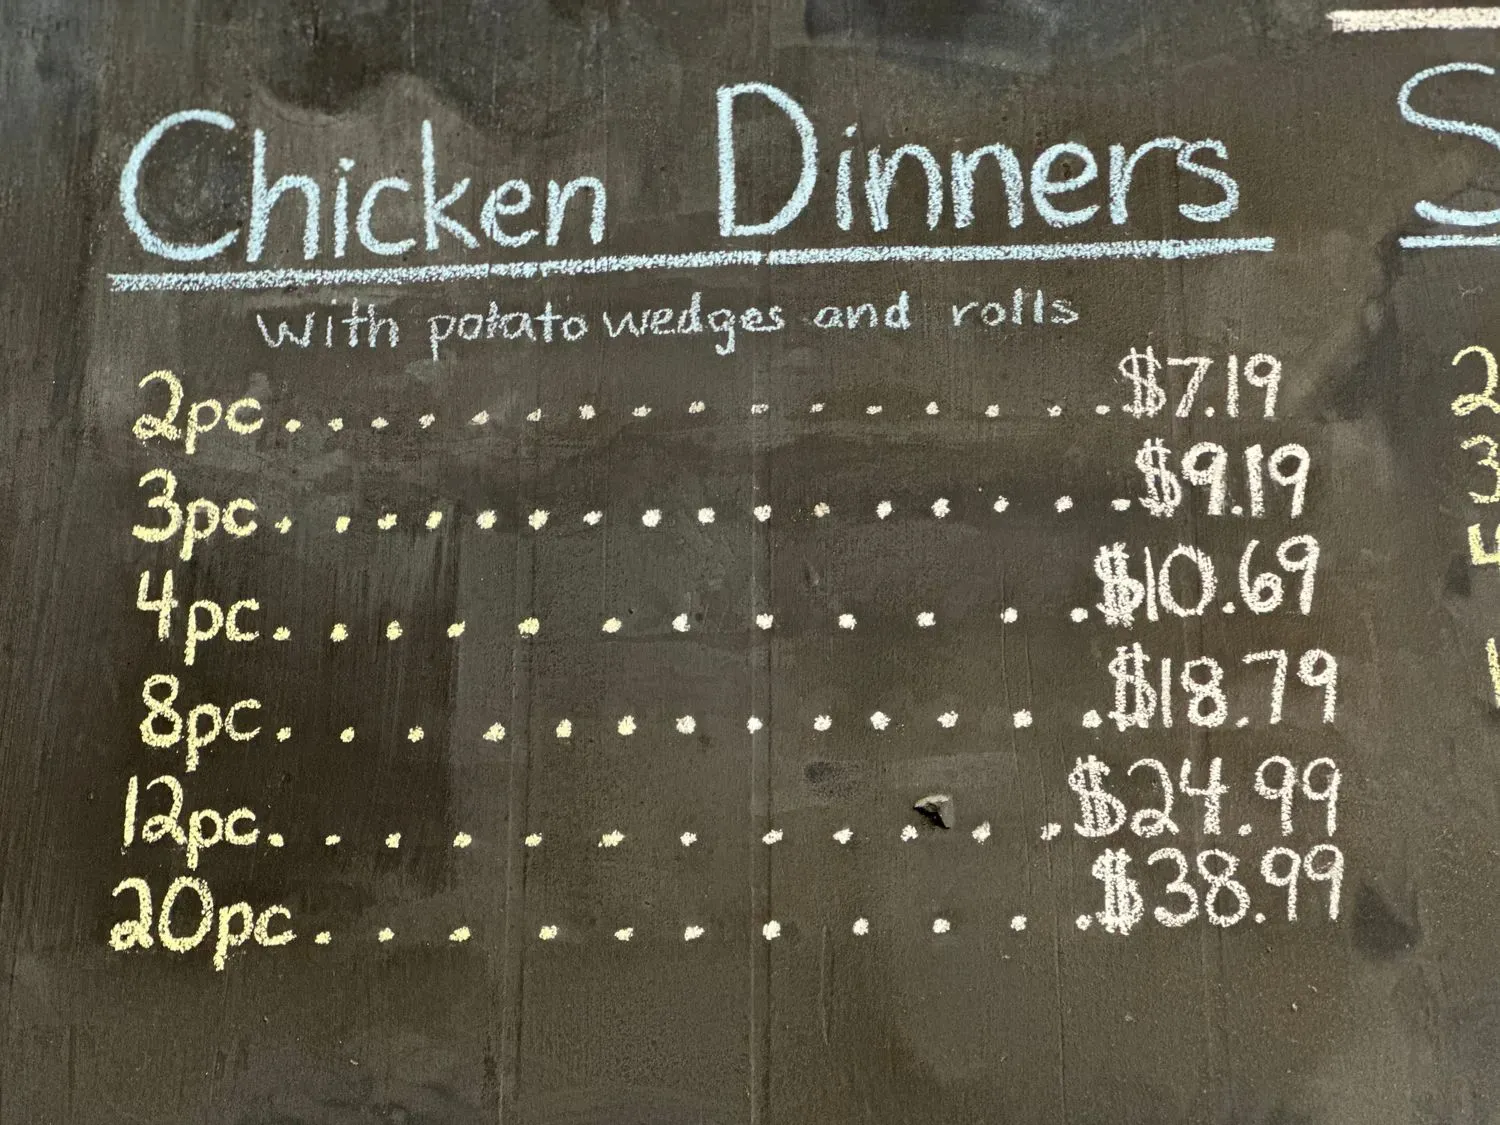 Chicken Dinners
with potato wedges and rolls
2pc. . . . . . . . . . . . . . . $7.19
3pc. . . . . . . . . . . . . . . . $9.19
4pc. . . . . . . . . . . . $10.69
8pc. . . . . . . . . . . . . $18.79
12pc. . . . . . . . . . . . $24.99
20pc. . . . . . . . . . . $38.99
S
2
3
5
1